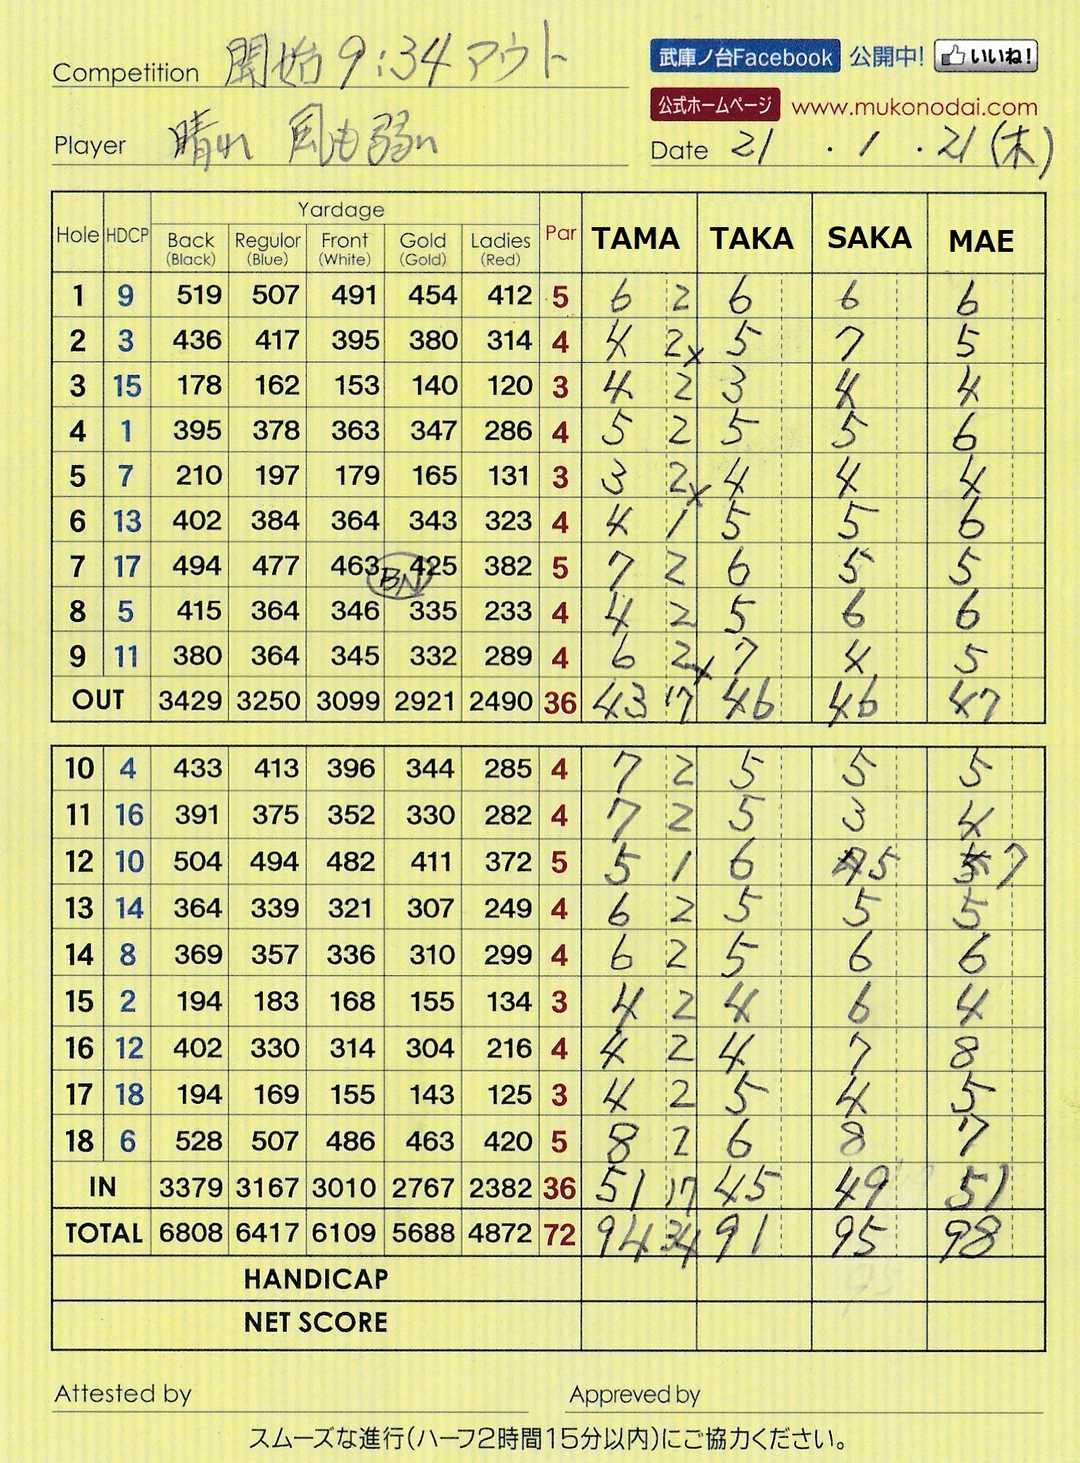 Competition 開始 9:34 アウト
武庫ノ台Facebook 公開中! いいね!
公式ホームページ www.mukonodai.com
Player 晴れ 風も弱い
Date 21 . 1 . 21(木)
Hole HDCP Yardage Par TAMA TAKA SAKA MAE
Back (Black) Regulor (Blue) Front (White) Gold (Gold) Ladies (Red)
1 9 519 507 491 454 412 5 6 2 6 6 6
2 3 436 417 395 380 314 4 4 2x 5 7 5
3 15 178 162 153 140 120 3 4 2 3 4 4
4 1 395 378 363 347 286 4 5 2 5 5 6
5 7 210 197 179 165 131 3 3 2x 4 4 4
6 13 402 384 364 343 323 4 4 1 5 5 6
7 17 494 477 463 BN 425 382 5 7 2 6 5 5
8 5 415 364 346 335 233 4 4 2 5 6 6
9 11 380 364 345 332 289 4 6 2x 7 4 5
OUT 3429 3250 3099 2921 2490 36 43 17 46 46 47
10 4 433 413 396 344 285 4 7 2 5 5 5
11 16 391 375 352 330 282 4 7 2 5 3 4
12 10 504 494 482 411 372 5 5 1 6 5 7
13 14 364 339 321 307 249 4 6 2 5 5 5
14 8 369 357 336 310 299 4 6 2 5 6 6
15 2 194 183 168 155 134 3 4 2 4 6 4
16 12 402 330 314 304 216 4 4 2 4 7 8
17 18 194 169 155 143 125 3 4 2 5 4 5
18 6 528 507 486 463 420 5 8 2 6 8 7
IN 3379 3167 3010 2767 2382 36 51 17 45 49 51
TOTAL 6808 6417 6109 5688 4872 72 94 34 91 95 98
HANDICAP
NET SCORE
Attested by
Appreved by
スムーズな進行(ハーフ2時間15分以内)にご協力ください。